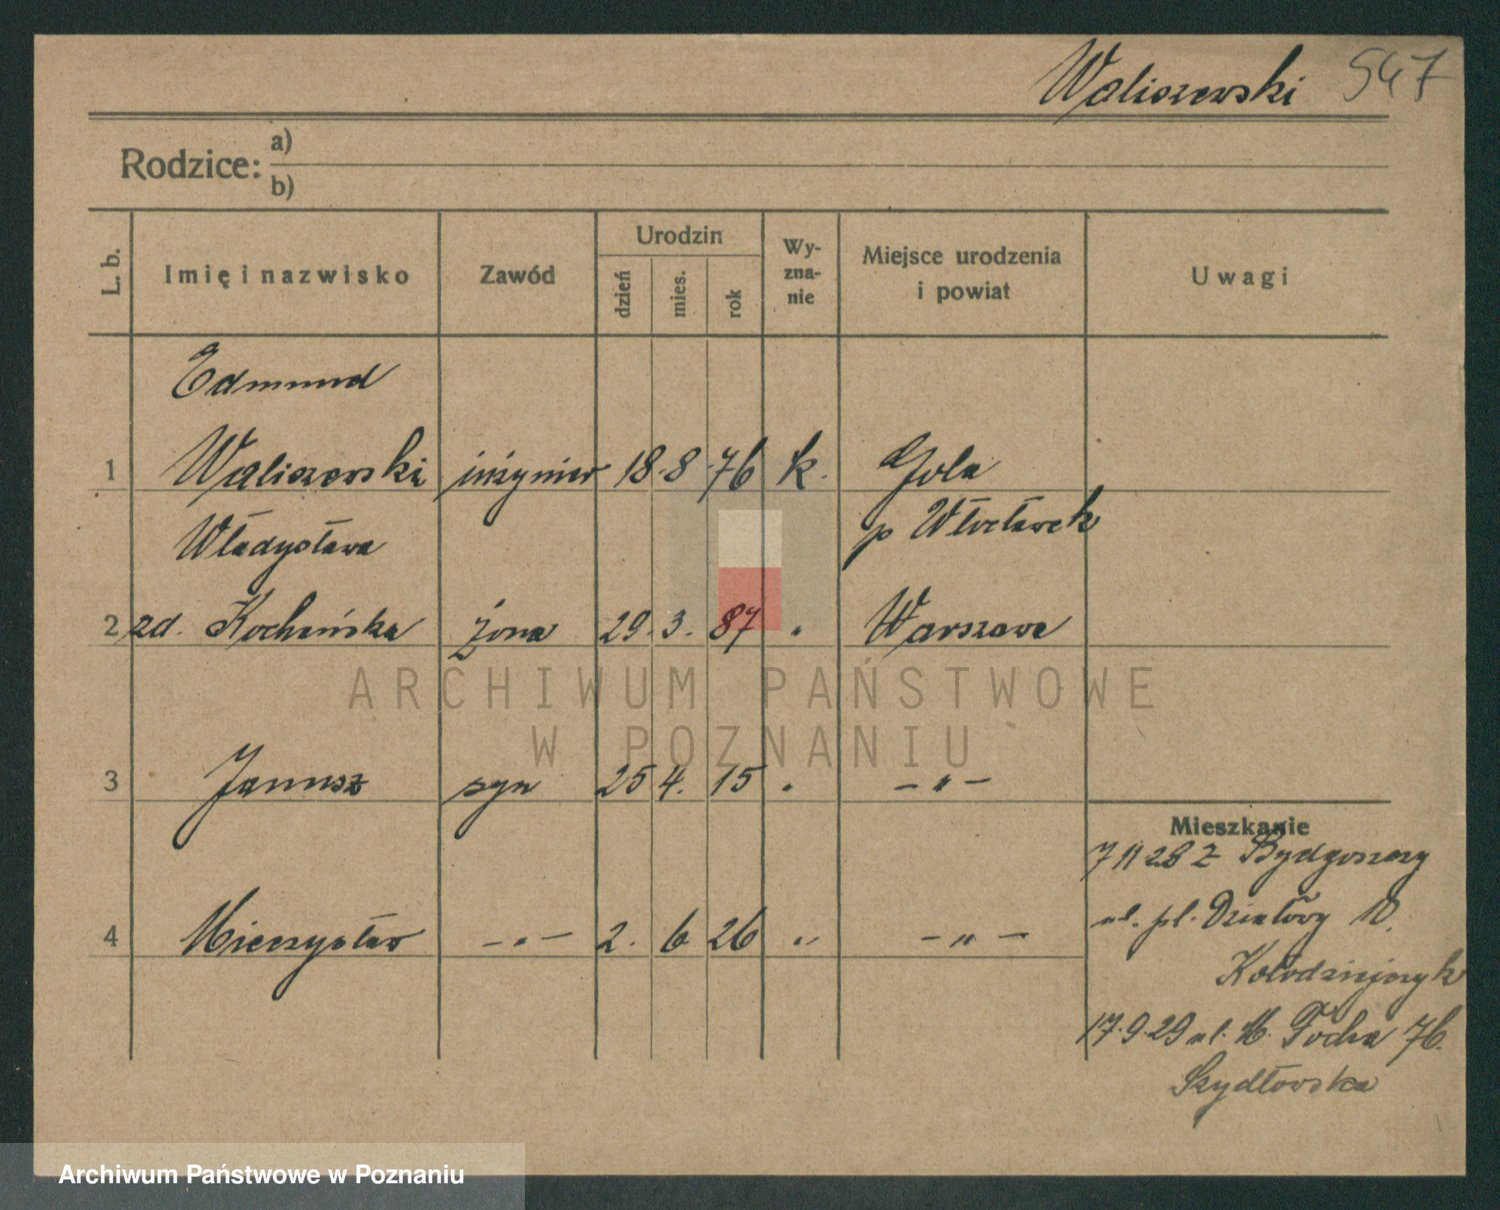 Waliszewski 547
Rodzice: a)
b)
L. b. Imię i nazwisko Zawód Urodzin dzień mies. rok Wy-zna-nie Miejsce urodzenia i powiat Uwagi
Edmund
1 Waliszewski inżynier 18. 8. 76 k. Gola
Władysława p Włocławek
2 zd. Kochańska żona 29. 3. 87 " Warszawa
3 Janusz syn 25 4. 15 " — " —
Mieszkanie
7 11 28 z Bydgoszczy
ul. pl. Działowy 10.
4 Mieczysław — " — 2. 6 26 " — " —
Kołodziejczyk
17.9.29 ul. M. Focha 76.
Szydłowska
ARCHIWUM PAŃSTWOWE
W POZNANIU
Archiwum Państwowe w Poznaniu